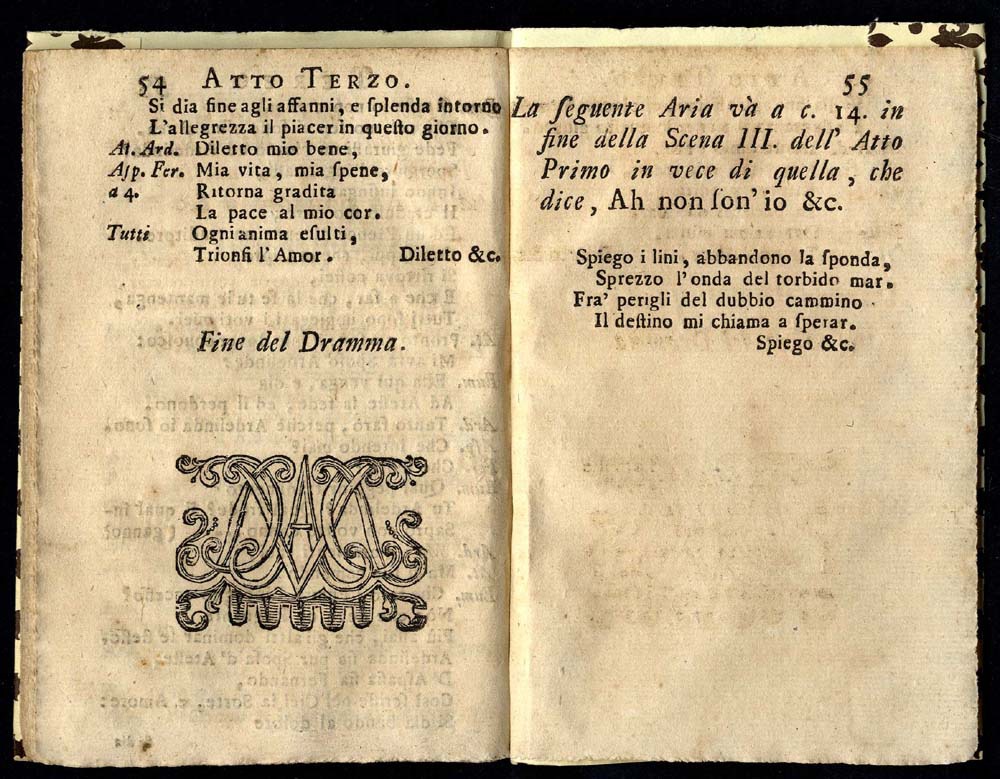 54 ATTO TERZO.
Si dia fine agli affanni, e ſplenda intorno
L'allegrezza il piacer in queſto giorno.
At. Ard. Diletto mio bene,
Aſp. Fer. Mia vita, mia ſpene,
a 4. Ritorna gradita
La pace al mio cor.
Tutti Ogni anima eſulti,
Trionfi l'Amor. Diletto &c.
Fine del Dramma.
55
La ſeguente Aria và a c. 14. in
fine della Scena III. dell' Atto
Primo in vece di quella, che
dice, Ah non ſon' io &c.
Spiego i lini, abbandono la ſponda,
Sprezzo l'onda del torbido mar.
Fra' perigli del dubbio cammino
Il deſtino mi chiama a ſperar.
Spiego &c.